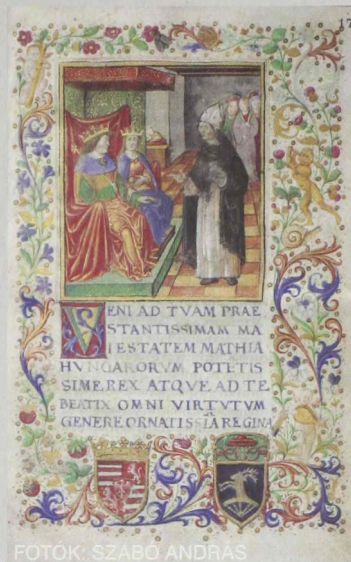 17
VENI AD TVAM PRAE
STANTISSIMAM MA
IESTATEM MATHIA
HVNGARORVM POTETIS
SIME REX ATQVE AD TE
BEATIX OMNI VIRTVTVM
GENERE ORNATISSIA REGINA
FOTÓK: SZABÓ ANDRÁS